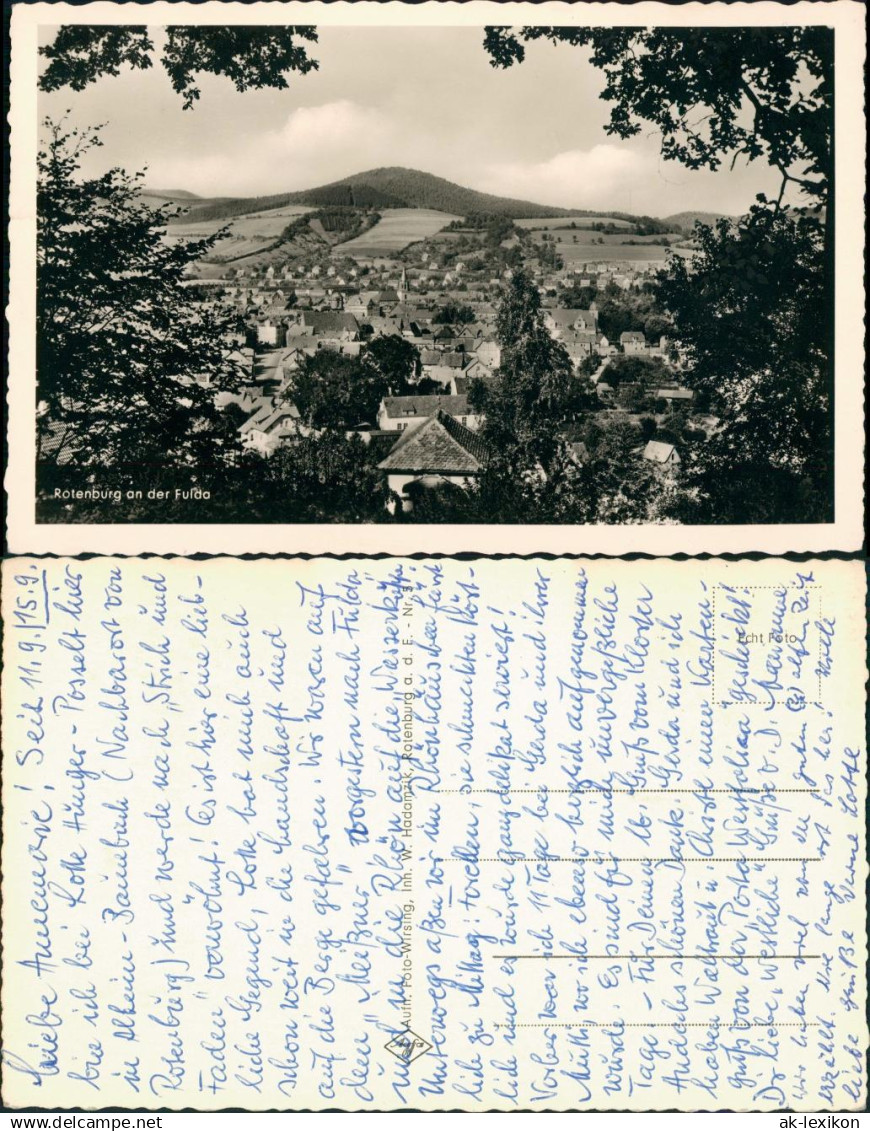 Rotenburg an der Fulda
Liebe Annemarie! Seit 11.9./15.9.
bin ich bei Lotte Hünger-Posselt hier
in Alheim-Baumbach (Nachbarort von
Rotenburg) und werde nach "Strich und
Faden" verwöhnt! Es ist hier eine lieb-
liche Gegend, Lotte hat mich auch
schon weit in die Landschaft und
auf die Berge gefahren. Wir waren auf
dem "Meißner", vorgestern nach Fulda
und in die Rhön auf die Wasserkuppe.
Unterwegs aßen wir im Rhönhäuschen fürst-
lich zu Mittag: Forellen, sie schmeckten köst-
lich und es wurde ganz delikat serviert!
Vorher war ich 11 Tage bei Gerda und ihrer
Mutti, wo ich ebenso herzlich aufgenommen
wurde. Es sind für mich unvergeßliche
Tage. - Für Deinen lb. Gruß vom Kloster
Andechs schönen Dank. Gerda und ich
haben Waltraut u. Christe einen Karten-
gruß von der Porta Westfalica geschickt!
Dir liebe, "westliche" Grüße v. D. Annemarie
Wir haben viel von der guten (?) alten Zeit
erzählt. Wie lange ist das her!
liebe Grüße Deine Lotte
Echt Foto
Aufn. Foto-Wirsing, Inh. W. Hadamzik, Rotenburg a. d. F. - Nr. 5
Agfa
ak-lexikon